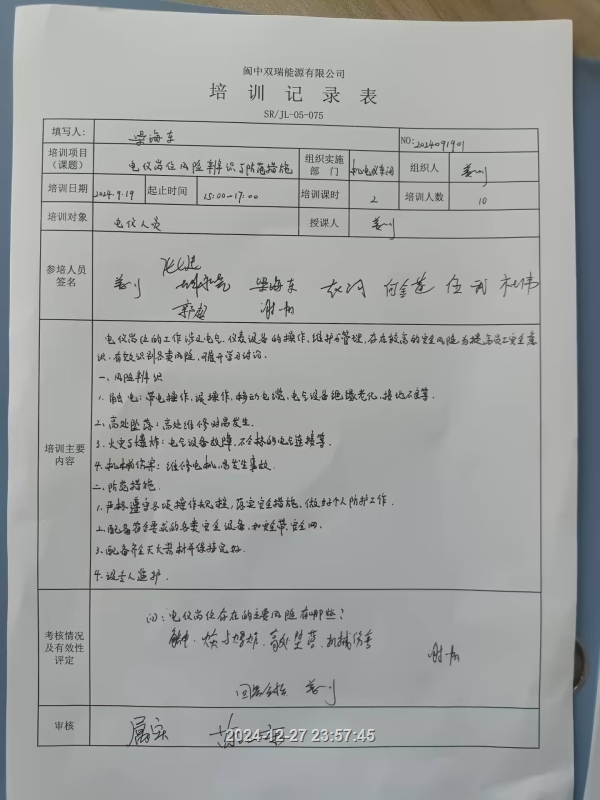 阆中双瑞能源有限公司
培训记录表
SR/JL-05-075
填写人: 梁海东 NO:2024091901
培训项目（课题） 电仪岗位风险辨识与防范措施 组织实施部门 机电仪车间 组织人 姜川
培训日期 2024.9.19 起止时间 15:00—17:00 培训课时 2 培训人数 10
培训对象 电仪人员 授课人 姜川
参培人员签名
姜川 梁海东
培训主要内容
电仪岗位的工作涉及电气、仪表设备的操作、维护与管理,存在较高的安全风险,为提高员工安全意
识,有效识别各类风险,开展学习讨论.
一、风险辨识
1、触电:带电操作、误操作、移动电缆、电气设备绝缘老化、接地不良等.
2、高处坠落:高处维修时易发生.
3、火灾与爆炸:电气设备故障,不合格的电气连接等.
4、机械伤害:维修电机,易发生事故.
二、防范措施.
1、严格遵守各项操作规程,落实安全措施,做好个人防护工作.
2、配备符合要求的各类安全设备,如安全带、安全网.
3、配备齐全灭火器材并保持完好.
4、设专人监护.
考核情况及有效性评定
问:电仪岗位存在的主要风险有哪些?
触电、火灾与爆炸、高处坠落、机械伤害
回答合格 姜川
审核 属实
2024-12-27 23:57:45